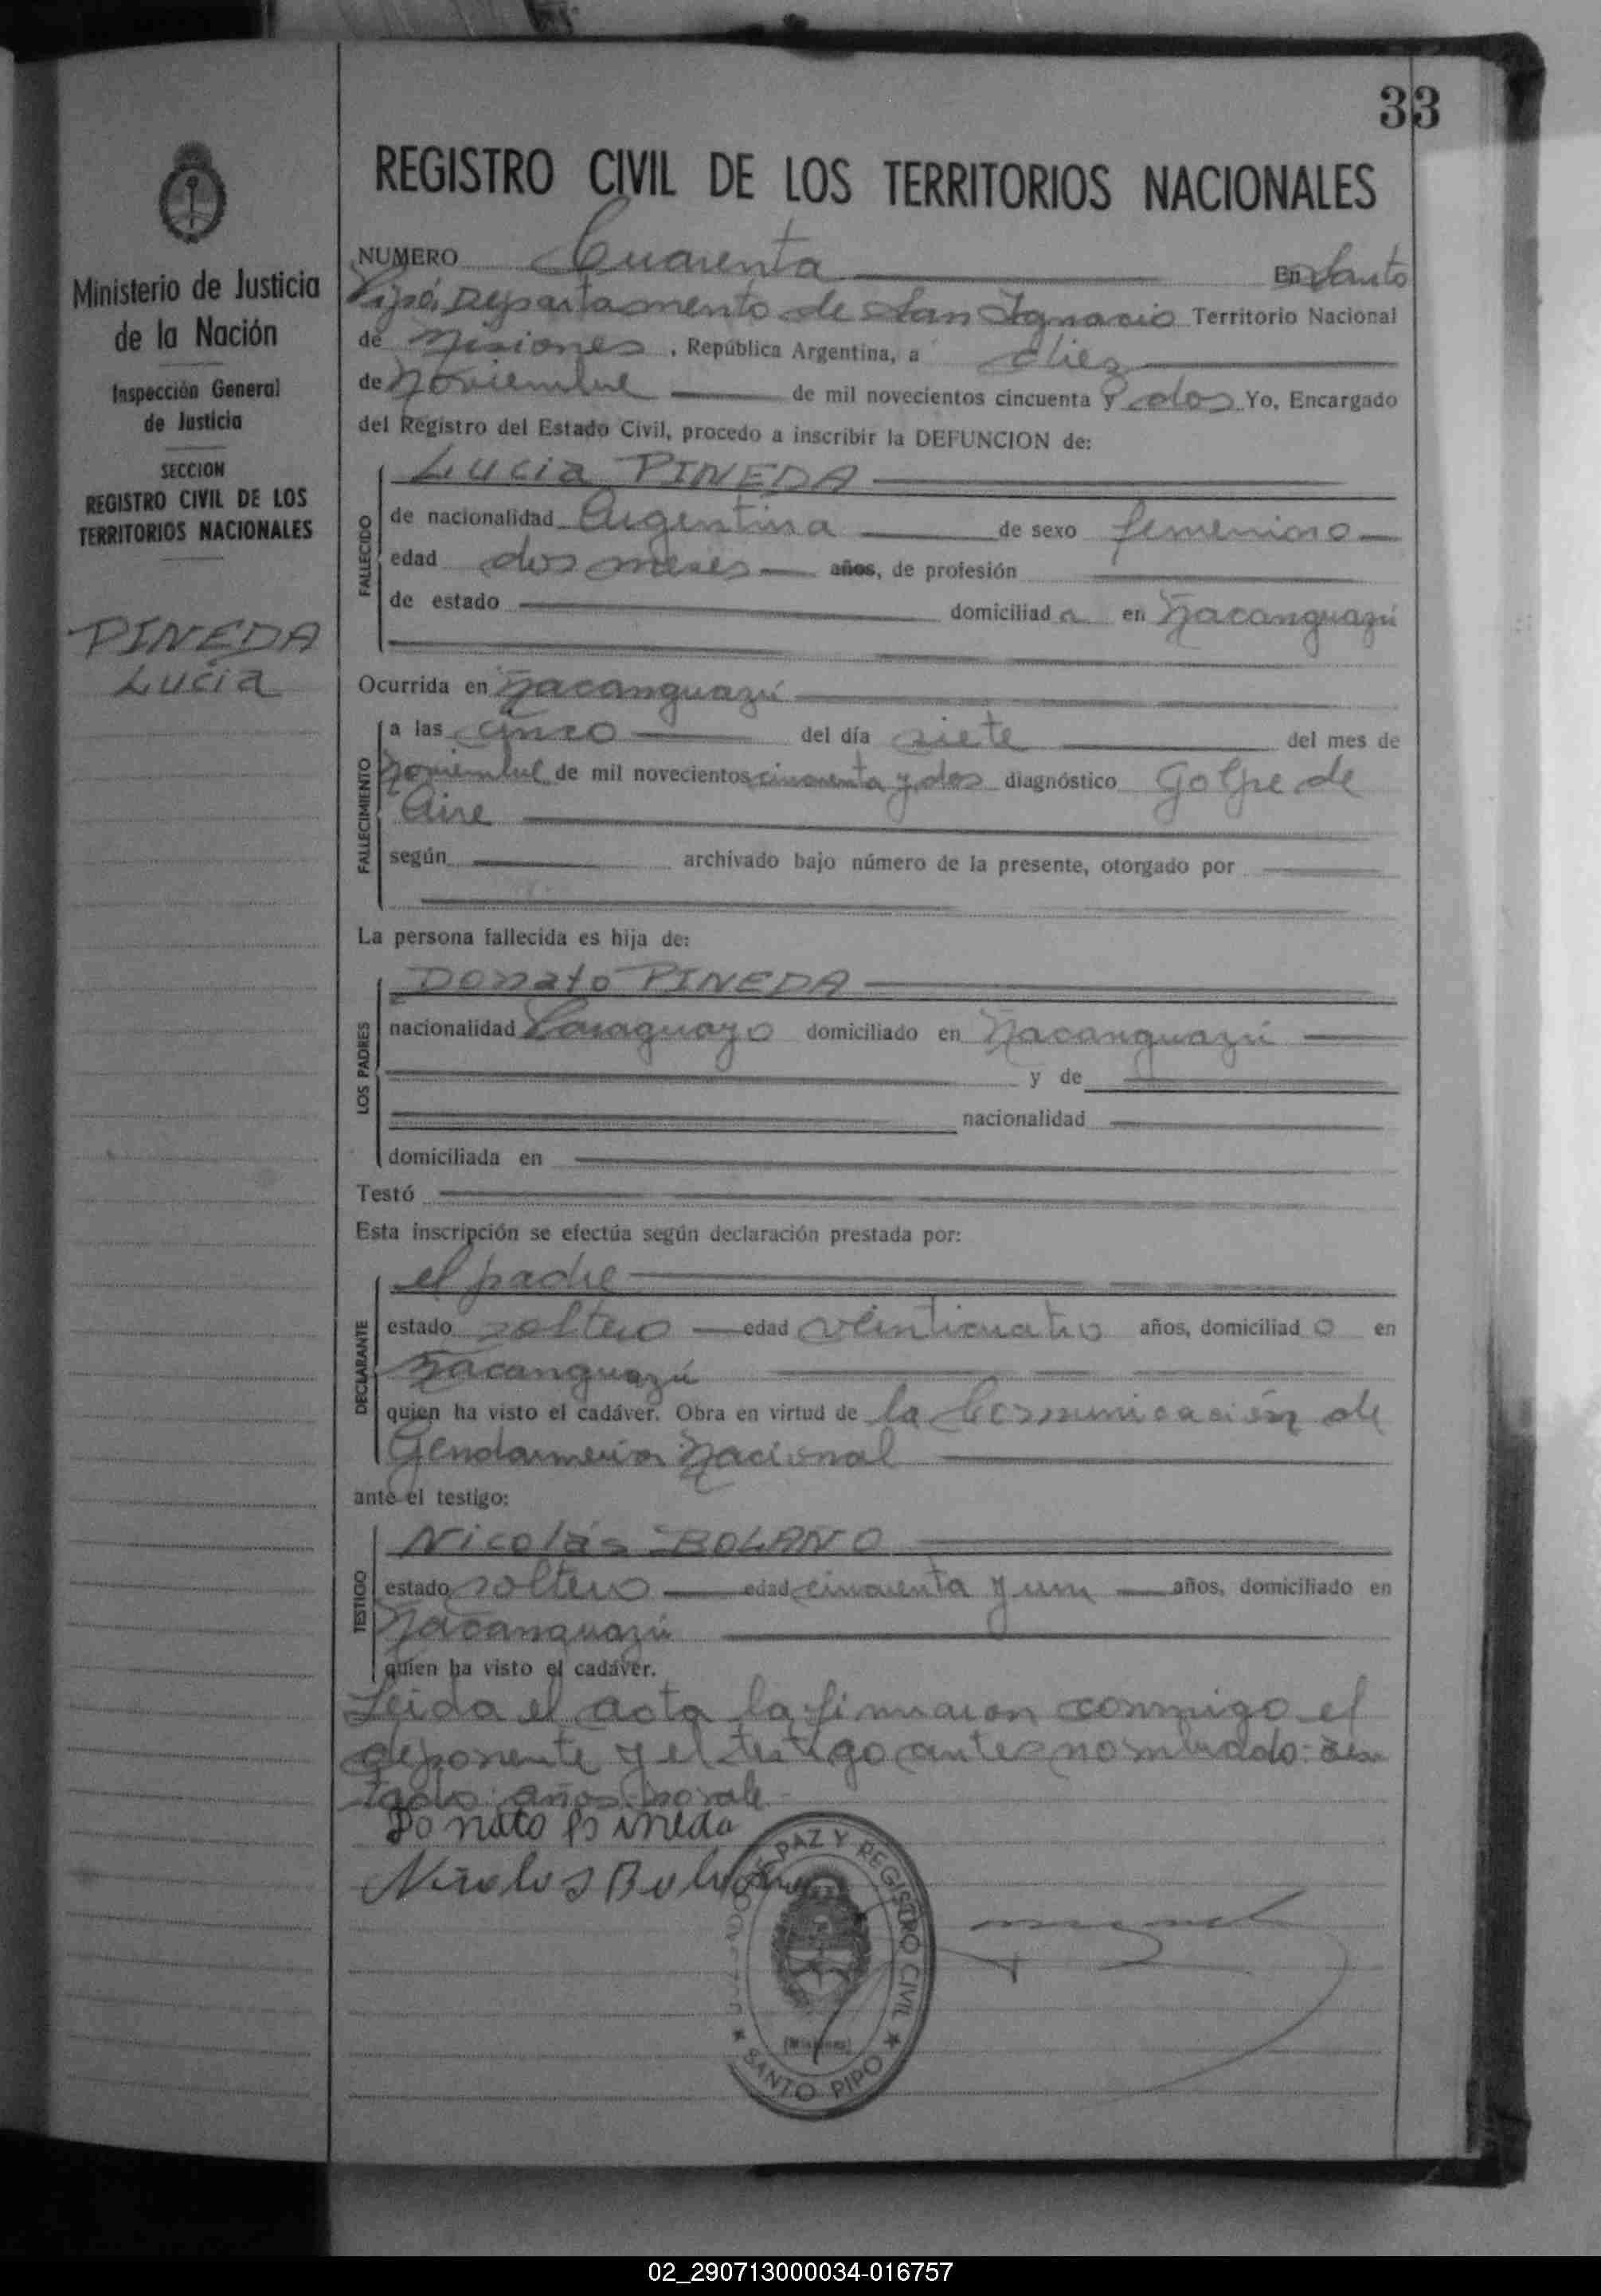 33
REGISTRO CIVIL DE LOS TERRITORIOS NACIONALES
Ministerio de Justicia
de la Nación
Inspección General
de Justicia
SECCION
REGISTRO CIVIL DE LOS
TERRITORIOS NACIONALES
PINEDA
Lucia
NUMERO Cuarenta En Santo
Pipó, Departamento de San Ignacio Territorio Nacional
de Misiones, República Argentina, a diez
de Noviembre de mil novecientos cincuenta y dos Yo, Encargado
del Registro del Estado Civil, procedo a inscribir la DEFUNCION de:
FALLECIDO
Lucia PINEDA
de nacionalidad Argentina de sexo femenino
edad dos meses años, de profesión
de estado domiciliad a en Ñacanguazú
Ocurrida en Ñacanguazú
FALLECIMIENTO
a las cinco del día siete del mes de
Noviembre de mil novecientos cincuenta y dos diagnóstico Golpe de
Aire
según archivado bajo número de la presente, otorgado por
La persona fallecida es hija de:
LOS PADRES
Donato PINEDA
nacionalidad Paraguayo domiciliado en Ñacanguazú
y de
nacionalidad
domiciliada en
Testó
Esta inscripción se efectúa según declaración prestada por:
DECLARANTE
el padre
estado soltero edad veinticuatro años, domiciliad o en
Ñacanguazú
quien ha visto el cadáver. Obra en virtud de la Comunicación de
Gendarmeria Nacional
ante el testigo:
TESTIGO
Nicolás BOLAÑO
estado soltero edad cincuenta y un años, domiciliado en
Ñacanguazú
quien ha visto el cadáver.
Leida el acta la firmaron conmigo el
deponente y el testigo antes nombrado: Tes
tado: años: no vale.-
Donato Pineda
Nicolas
PAZ Y REGISTRO CIVIL
(Misiones)
★ SANTO PIPO ★
02_290713000034-016757